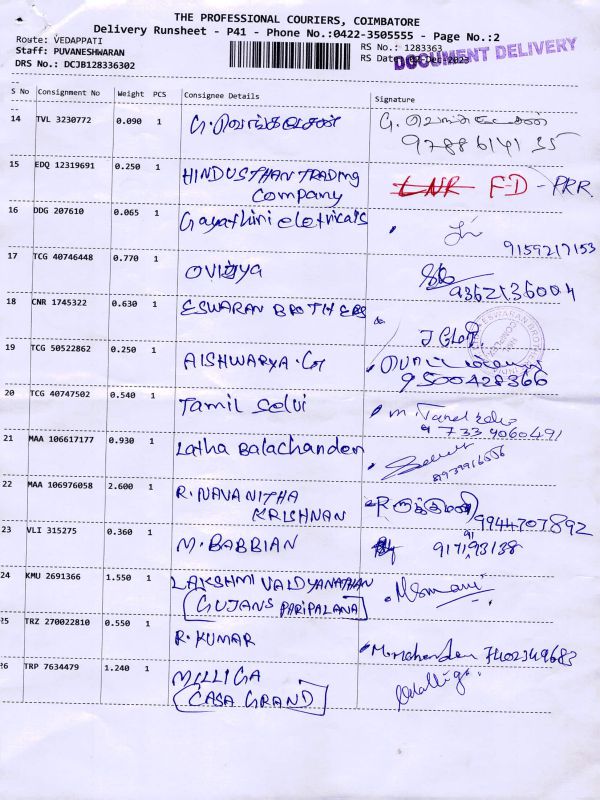 THE PROFESSIONAL COURIERS, COIMBATORE
Delivery Runsheet - P41 - Phone No.:0422-3505555 - Page No.:2
Route: VEDAPPATI
Staff: PUVANESHWARAN
DRS No.: DCJB128336302
RS No.: 1283363
RS Date: 02-Dec-2023
DOCUMENT DELIVERY
S No Consignment No Weight PCS Consignee Details Signature
14 TVL 3230772 0.090 1 G.வெங்கடேசன் G. வெங்கடேசன்
9788614135
15 EDQ 12319691 0.250 1 HINDUSTHAN TRADING LNR F-D - PRR
Company
16 DDG 207610 0.065 1 Gayathini eletricals
9159217153
17 TCG 40746448 0.770 1 OVIYA
9362536004
18 CNR 1745322 0.630 1 ESWARAN BROTHERS
19 TCG 50522862 0.250 1 AISHWARYA.G
9500428366
20 TCG 40747502 0.540 1 Tamil Selvi
97339060491
21 MAA 106617177 0.930 1 Latha Balachander
22 MAA 106976058 2.600 1 R.NAVANITHA
KRISHNAN 9944707892
23 VLI 315275 0.360 1 M.BABBIAN
24 KMU 2691366 1.550 1 LAKSHMI VAIDYANATHAN
GUJANS PARIPALANA
25 TRZ 270022810 0.550 1 R.KUMAR 7402349683
26 TRP 7634479 1.240 1 MILLIGA
CASA GRAND